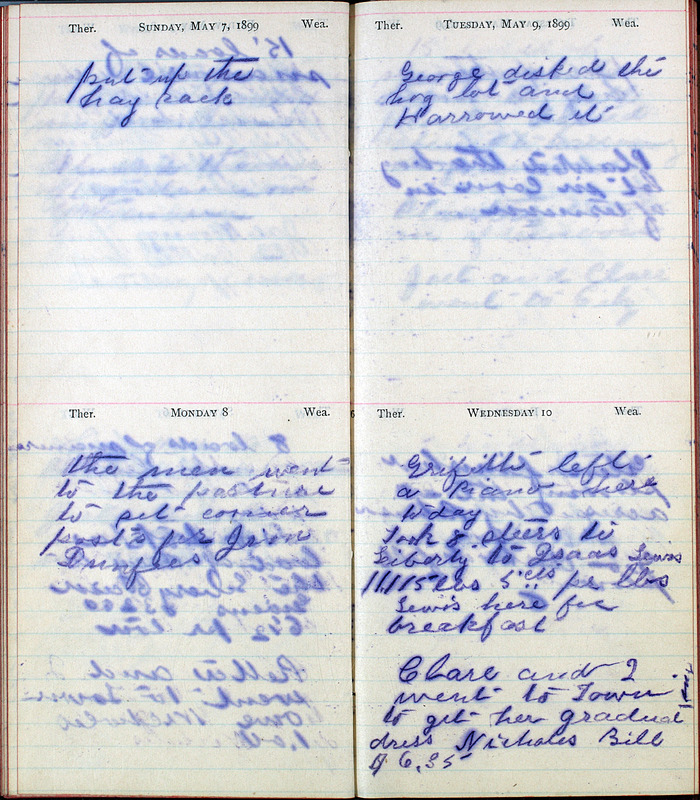 Ther. SUNDAY, MAY 7, 1899 Wea.
put up the
hay rack
Ther. MONDAY 8 Wea.
the men went
to the pasture
to set corner
posts for Jron
Ther. TUESDAY, MAY 9, 1899 Wea.
George disked the
hog lot and
Harrowed it
Jack and Clare
went to City
Ther. WEDNESDAY 10 Wea.
Grifith left
a Piano here
to day
Took 8 steers to
Liberty to Isaas Lewis
11,115 lbs 5 cts per lbs
Lewis here for
breakfast
Clare and I
went to Town
to get her graduating
dress Nichols Bill
$ 6.35